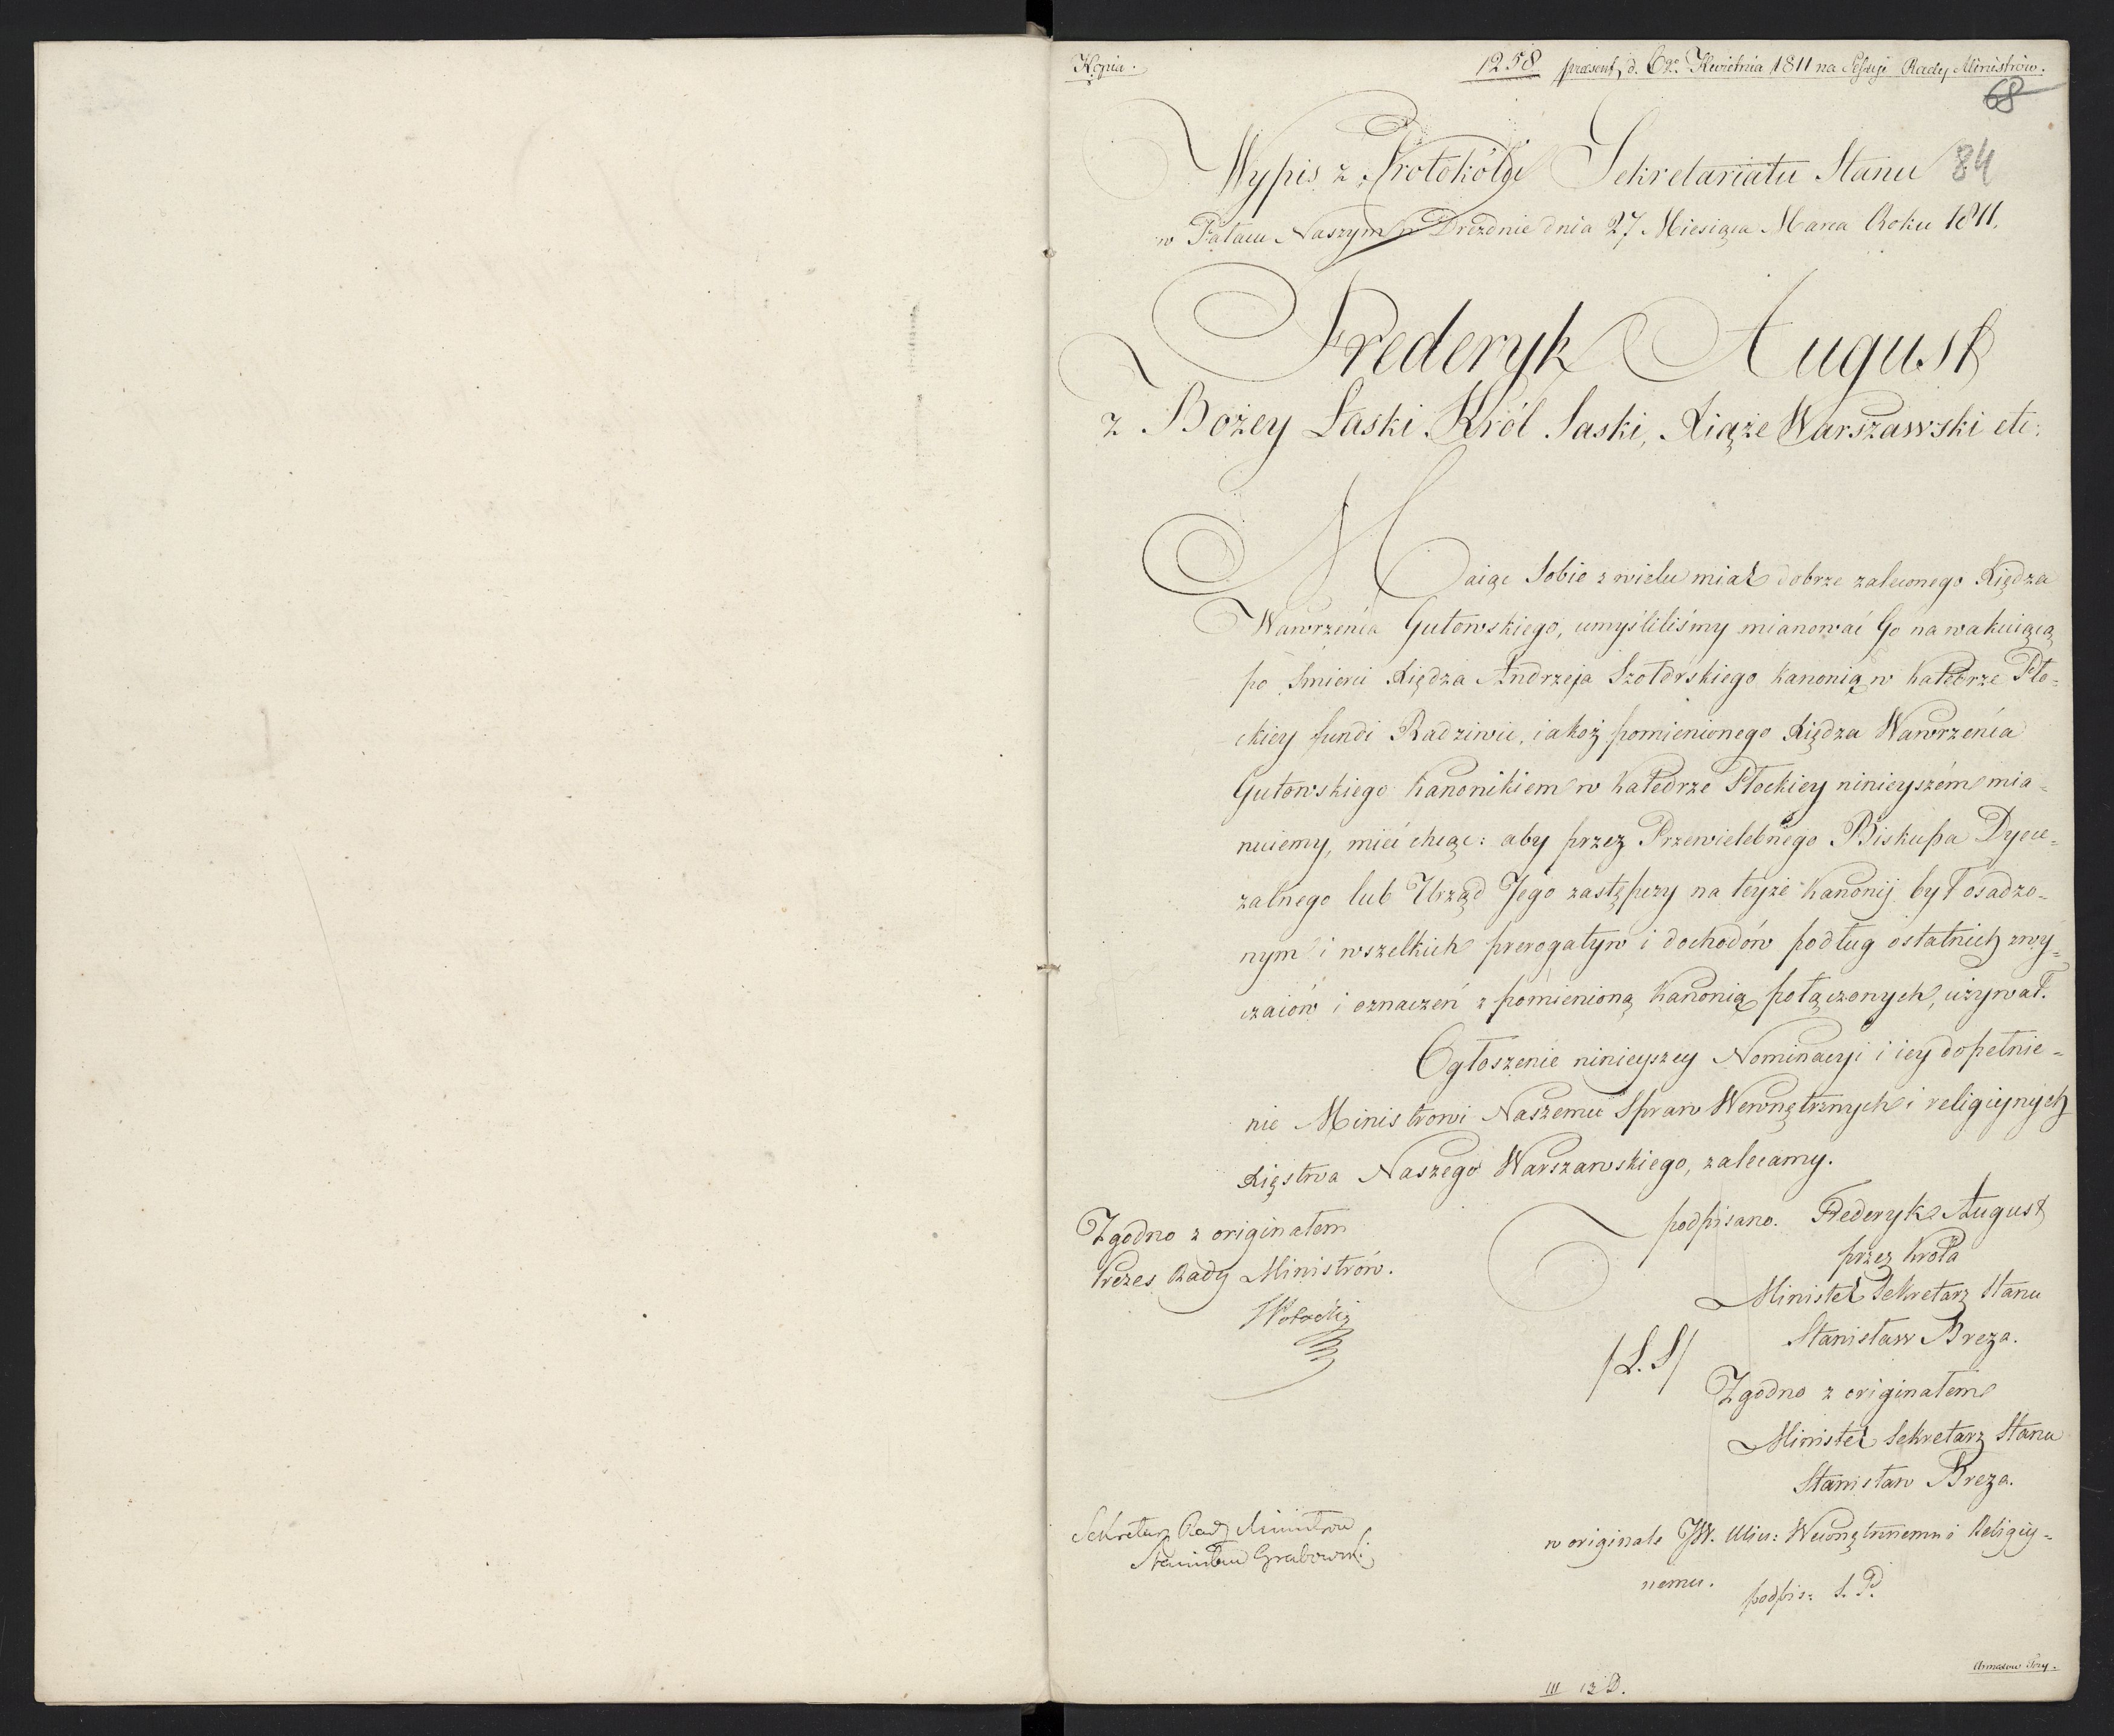 Kopia.
1258 praesent. d. 6go Kwietnia 1811 na Sessyi Rady Ministrów.
68
84
Wypis z Protokółu Sekretariatu Stanu
w Pałacu Naszym w Dreźdnie dnia 27 Miesiąca Marca Roku 1811.
Frederyk August
z Bożey Łaski Król Saski, Xiąże Warszawski etc:
Maiąc Sobie z wielu miar dobrze zaleconego Xiędza
Wawrzeńca Gutowskiego, umyśliliśmy mianować Go na wakuiącą
po śmierci Xiędza Andrzeja Szołdrskiego kanonią w katedrze Pło=
ckiey fundi Radziwie, iakoż pomienionego Xiędza Wawrzeńca
Gutowskiego kanonikiem w katedrze Płockiey ninieyszém mia=
nuiemy, mieć chcąc: aby przez Przewielebnego Biskupa Dyece=
zalnego lub Urząd Jego zastępczy na teyże kanonij był osadzo=
nym i wszelkich prerogatyw i dochodów podług ostatnich zwy=
czaiów i oznaczeń z pomienioną kanonią połączonych, używał.
Ogłoszenie ninieyszey Nominacyi i iey dopełnie=
nie Ministrowi Naszemu Spraw Wewnętrznych i religiynych
Xięstwa Naszego Warszawskiego, zalecamy.
podpisano. Frederyk August
przez Króla
Minister Sekretarz Stanu
Stanisław Breza.
/L.S/
Zgodno z originałem
Minister Sekretarz Stanu
Stanisław Breza.
Zgodno z originałem
Prezes Rady Ministrów.
Sekretarz Rady Ministrów
Stanisław Grabowski
w originale JW. Mins: Wewnętrznemu i Religiy=
nemu.
podpis: S. P.
III 13 D.